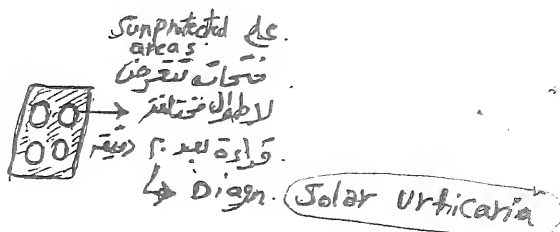 Sunprotected على
areas
فتحات تتعرض
لاطوال مختلفة
قراءة بعد ٢٠ دقيقة
↳ Diagn. Solar Urticaria